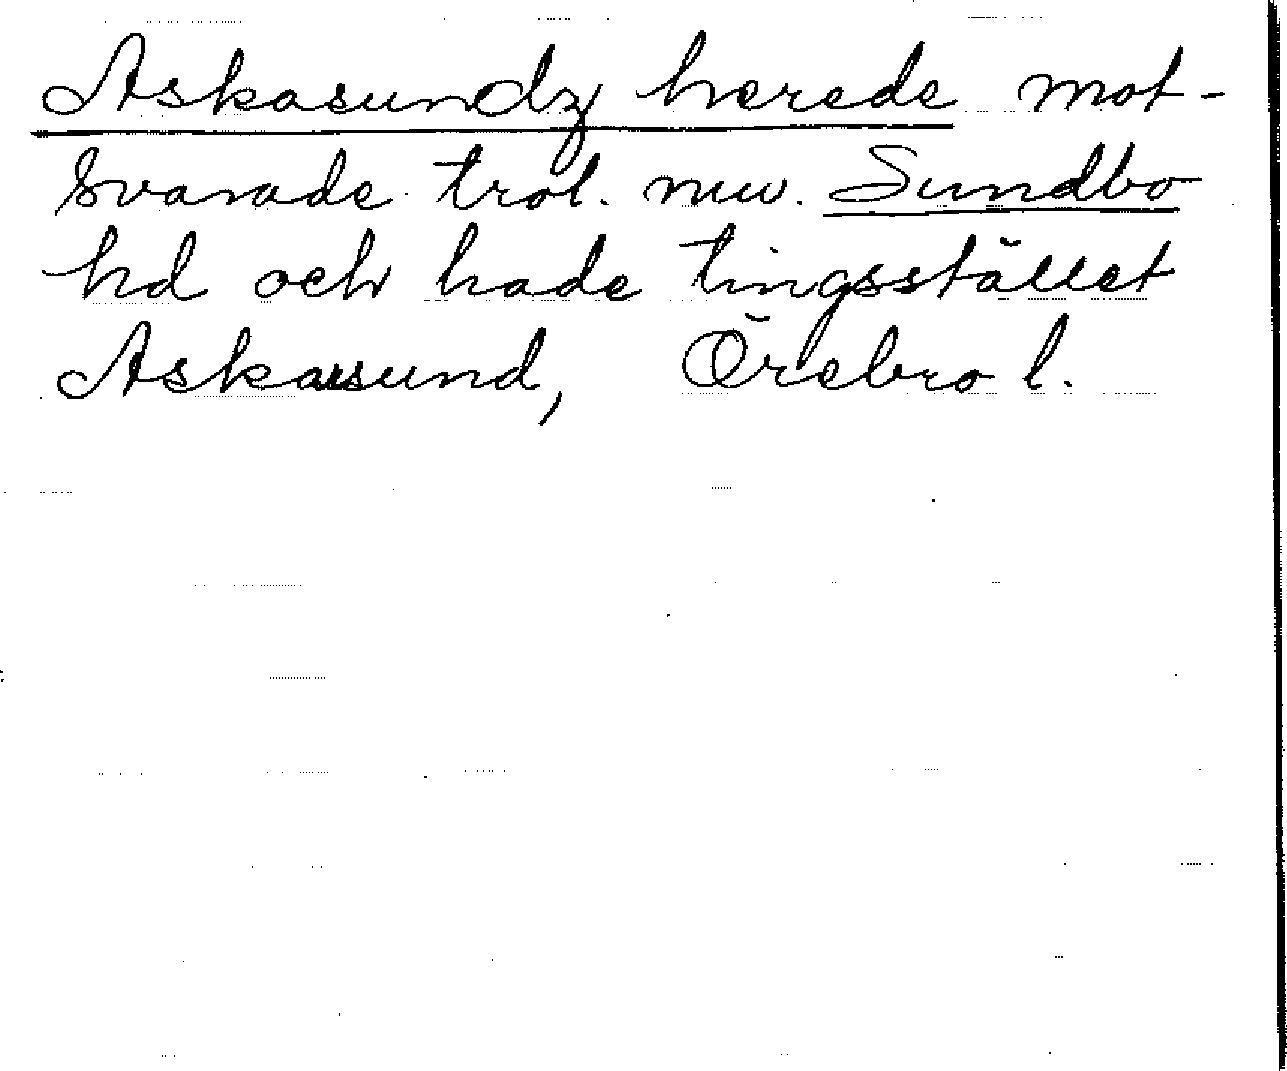 Askasundz herede mot-
svarade trol. nuv. Sundbo
hd och hade tingsstället
Askasund, Örebro l.